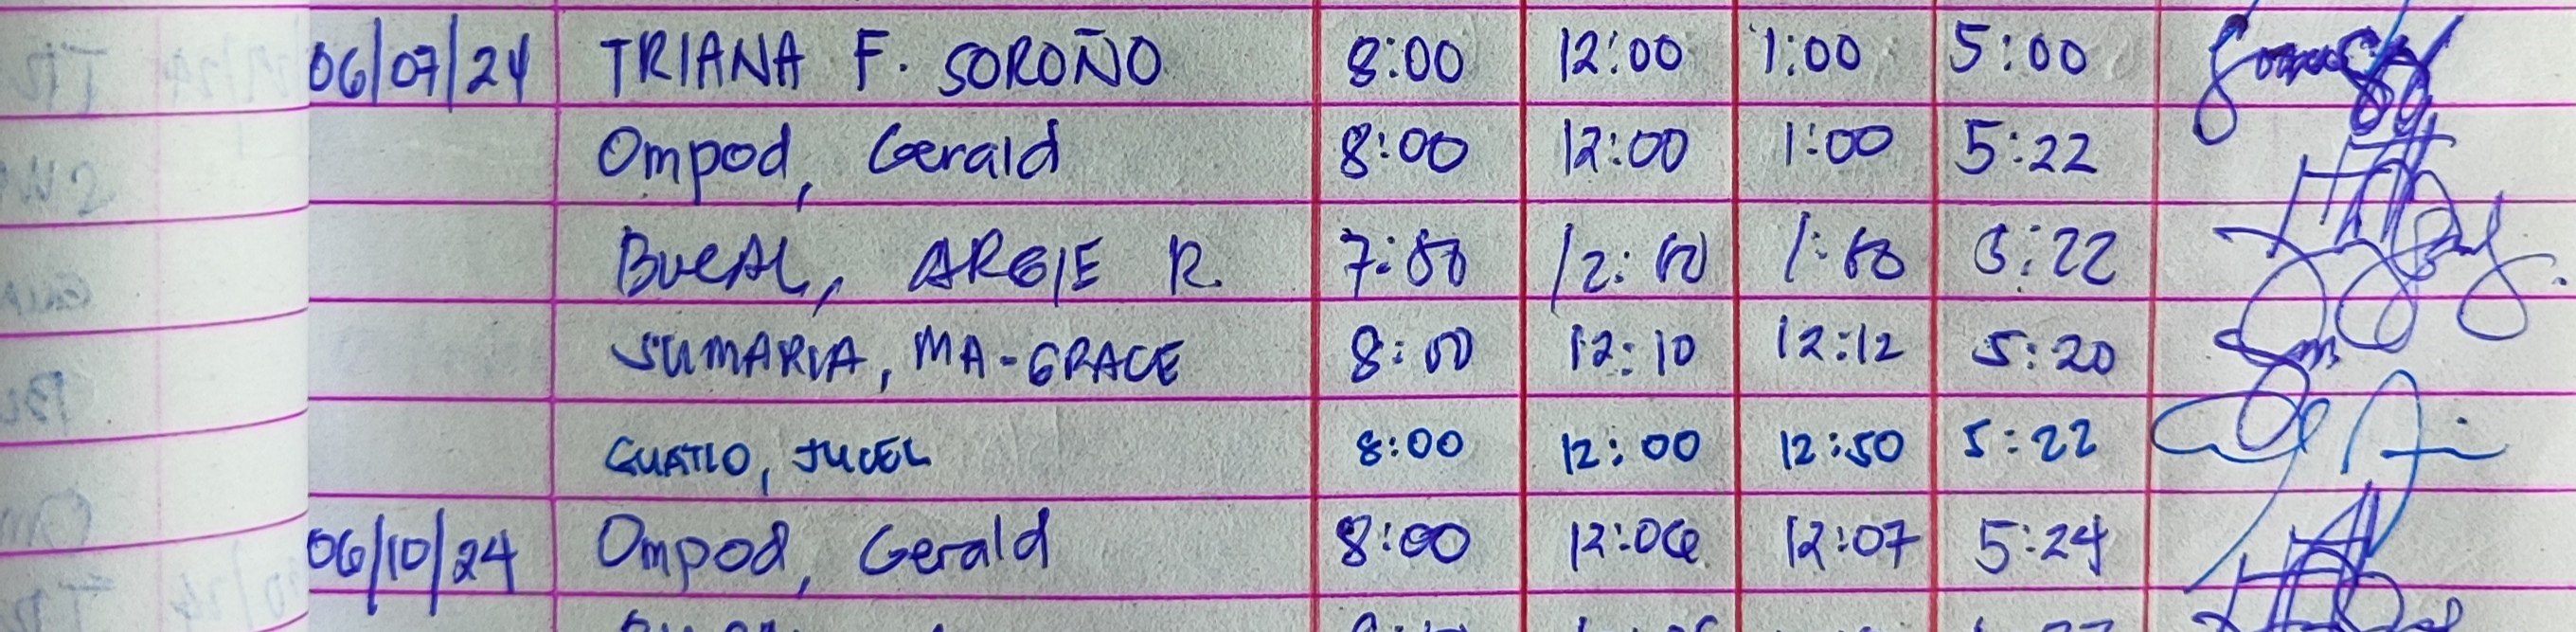 06/07/24 TRIANA F. SOROÑO 8:00 12:00 1:00 5:00
Ompod, Gerald 8:00 12:00 1:00 5:22
ARGIE R. 5:22
SUMARIA, MA-GRACE 8:00 12:10 12:12 5:20
GUATLO, JUCEL 8:00 12:00 12:50 5:22
06/10/24 Ompod, Gerald 8:00 12:06 12:07 5:24